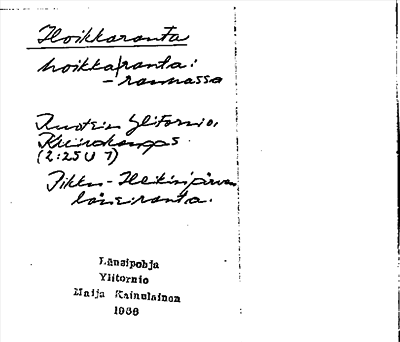 Hoikkaranta
hoikka|ranta:
- rannassa
Ruotsin Ylitornio,
(2:25 U 7)
Pikku-Heikinjärven
länsiranta.
Länsipohja
Ylitornio
Maija Kainulainen
1966